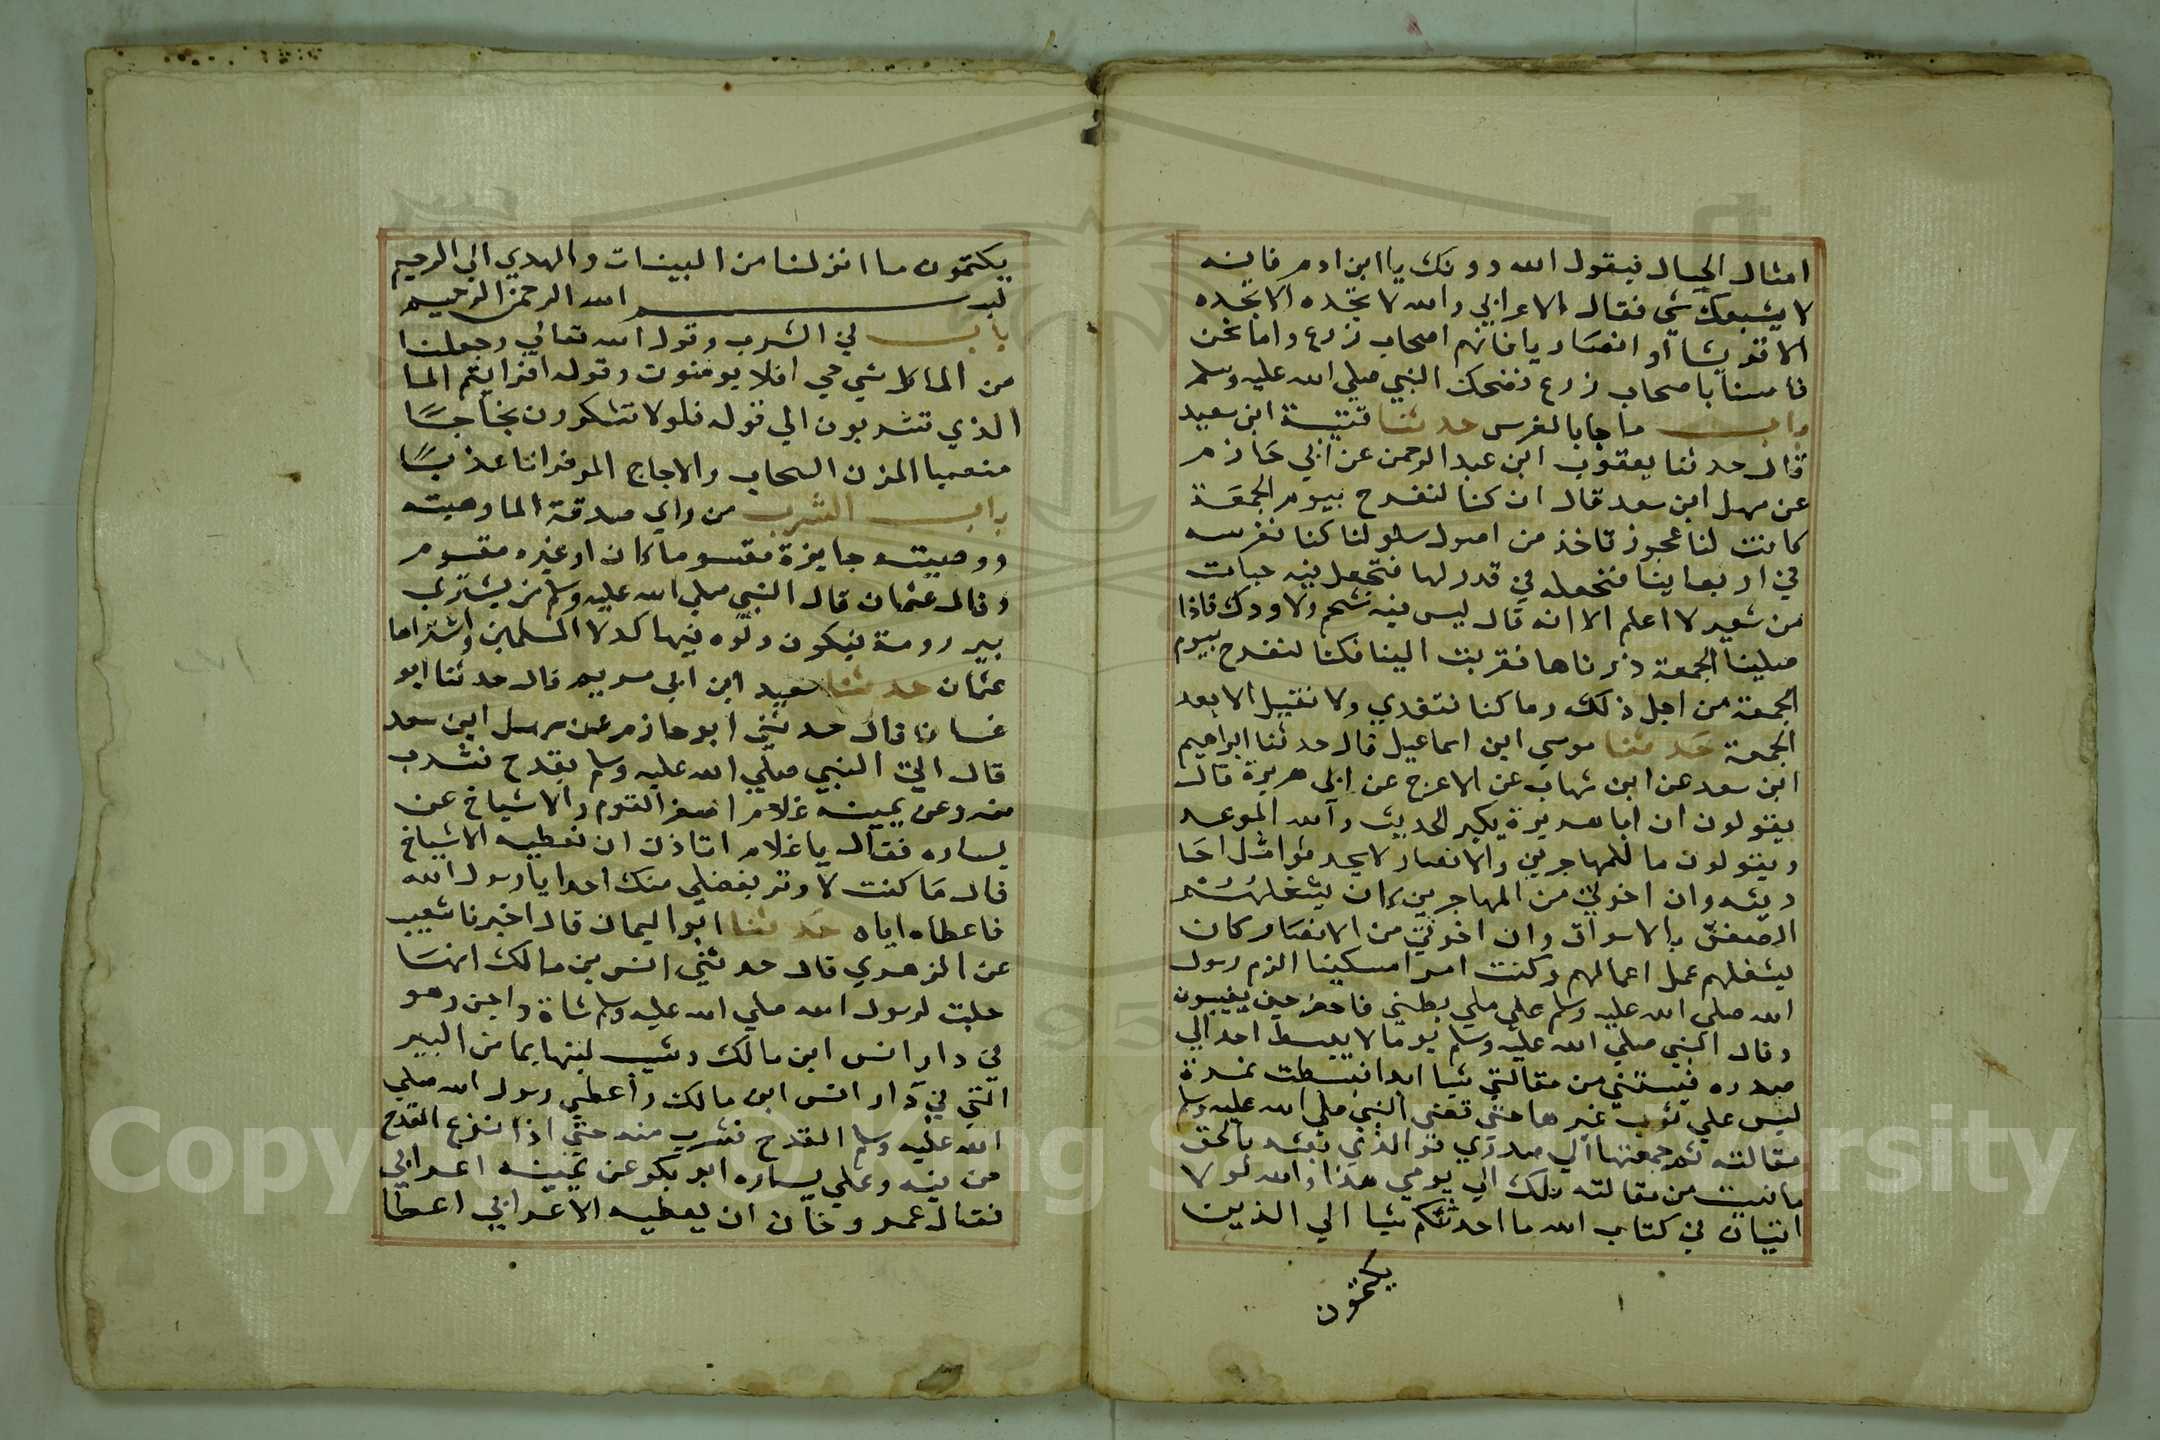 امثال الجبال فيقول الله دونك يا ابن ادم فانه
لا يشبعك شي فقال الاعرابي والله لا تجده الا تجده
الا قريشا او انصاريا فانهم اصحاب زرع واما نحن
فلسنا باصحاب زرع فضحك النبي صلي الله عليه وسلم
باب ما جا بالغرس حدثنا قتيبة ابن سعيد
قال حدثنا يعقوب ابن عبد الرحمن عن ابي حازم
عن سهل ابن سعد قال ان كنا لنفرح بيوم الجمعة
كانت لنا عجوز تاخذ من اصول سلق لنا كنا نغرسه
في اربعاينا فتجعله في قدر لها فتجعل فيه حبات
من شعير لا اعلم الا انه قال ليس فيه شحم ولا ودك فاذا
صلينا الجمعة زرناها فقربت الينا فكنا لنفرح بيوم
الجمعة من اجل ذلك وما كنا نتغدي ولا نقيل الا بعد
الجمعة حدثنا موسي ابن اسماعيل قال حدثنا ابراهيم
ابن سعد عن ابن شهاب عن الاعرج عن ابي هريرة قال
يقولون ان ابا هريرة يكثر الحديث والله الموعد
ويقولون ما للمهاجرين والانصار لا يحدثوا مثل احا
ديثه وان اخوتي من المهاجرين كان يشغلهم
الصفق بالاسواق وان اخوتي من الانصار كان
يشغلهم عمل اعمالهم وكنت امرا مسكينا الزم رسول
الله صلي الله عليه وسلم علي ملي بطني فاحضر حين يغيبون
وقال النبي صلي الله عليه وسلم يوما لا يبسط احد الي
صدره فينسي من مقالتي شيا ابدا فبسطت نمرة
ليس علي ثوب غيرها حتي قضي النبي صلي الله عليه وسلم
مقالته ثم جمعتها الي صدري فو الذي بعثه بالحق
ما نسيت من مقالته تلك الي يومي هذا والله لولا
ايتان في كتاب الله ما احدثتكم شيا الي الذين
يكتمون
يكتمون ما انزلنا من البينات والهدي الي الرحيم
بسم الله الرحمن الرحيم
باب في الشرب وقول الله تعالي وجعلنا
من الما كل شي حي افلا يومنون وقوله افرايتم الما
الذي تشربون الي قوله فلولا تشكرون ثجاجا
منصبا المزن السحاب والاجاج المر فراتا عذبا
باب الشرب من راي صدقة الما وهبته
ووصيته جايزة مقسوما كان او غيره مقسوم
وقال عثمان قال النبي صلي الله عليه وسلم من يشتري
بير رومة فيكون دلوه فيها كدلا المسلمين واشتراها
عثمان حدثنا سعيد ابن ابي مريم قال حدثنا ابو
غسان قال حدثني ابو حازم عن سهل ابن سعد
قال اتي النبي صلي الله عليه وسلم بقدح فشرب
منه وعن يمينه غلام اصغر القوم والاشياخ عن
يساره فقال يا غلام اتاذن ان نعطيه الاشياخ
قال ما كنت لاوثر بفضلي منك احدا يا رسول الله
فاعطاه اياه حدثنا ابو اليمان قال اخبرنا شعيب
عن الزهري قال حدثني انس بن مالك انها
حلبت لرسول الله صلي الله عليه وسلم شاة داجن وهو
في دار انس ابن مالك وشيب لبنها بما من البير
التي في دار انس ابن مالك واعطي رسول الله صلي
الله عليه وسلم القدح فشرب منه حتي اذا نزع القدح
من فيه وعلي يساره ابو بكر وعن يمينه اعرابي
فقال عمر وخاف ان يعطيه الاعرابي اعط
Copyright © King Saud University